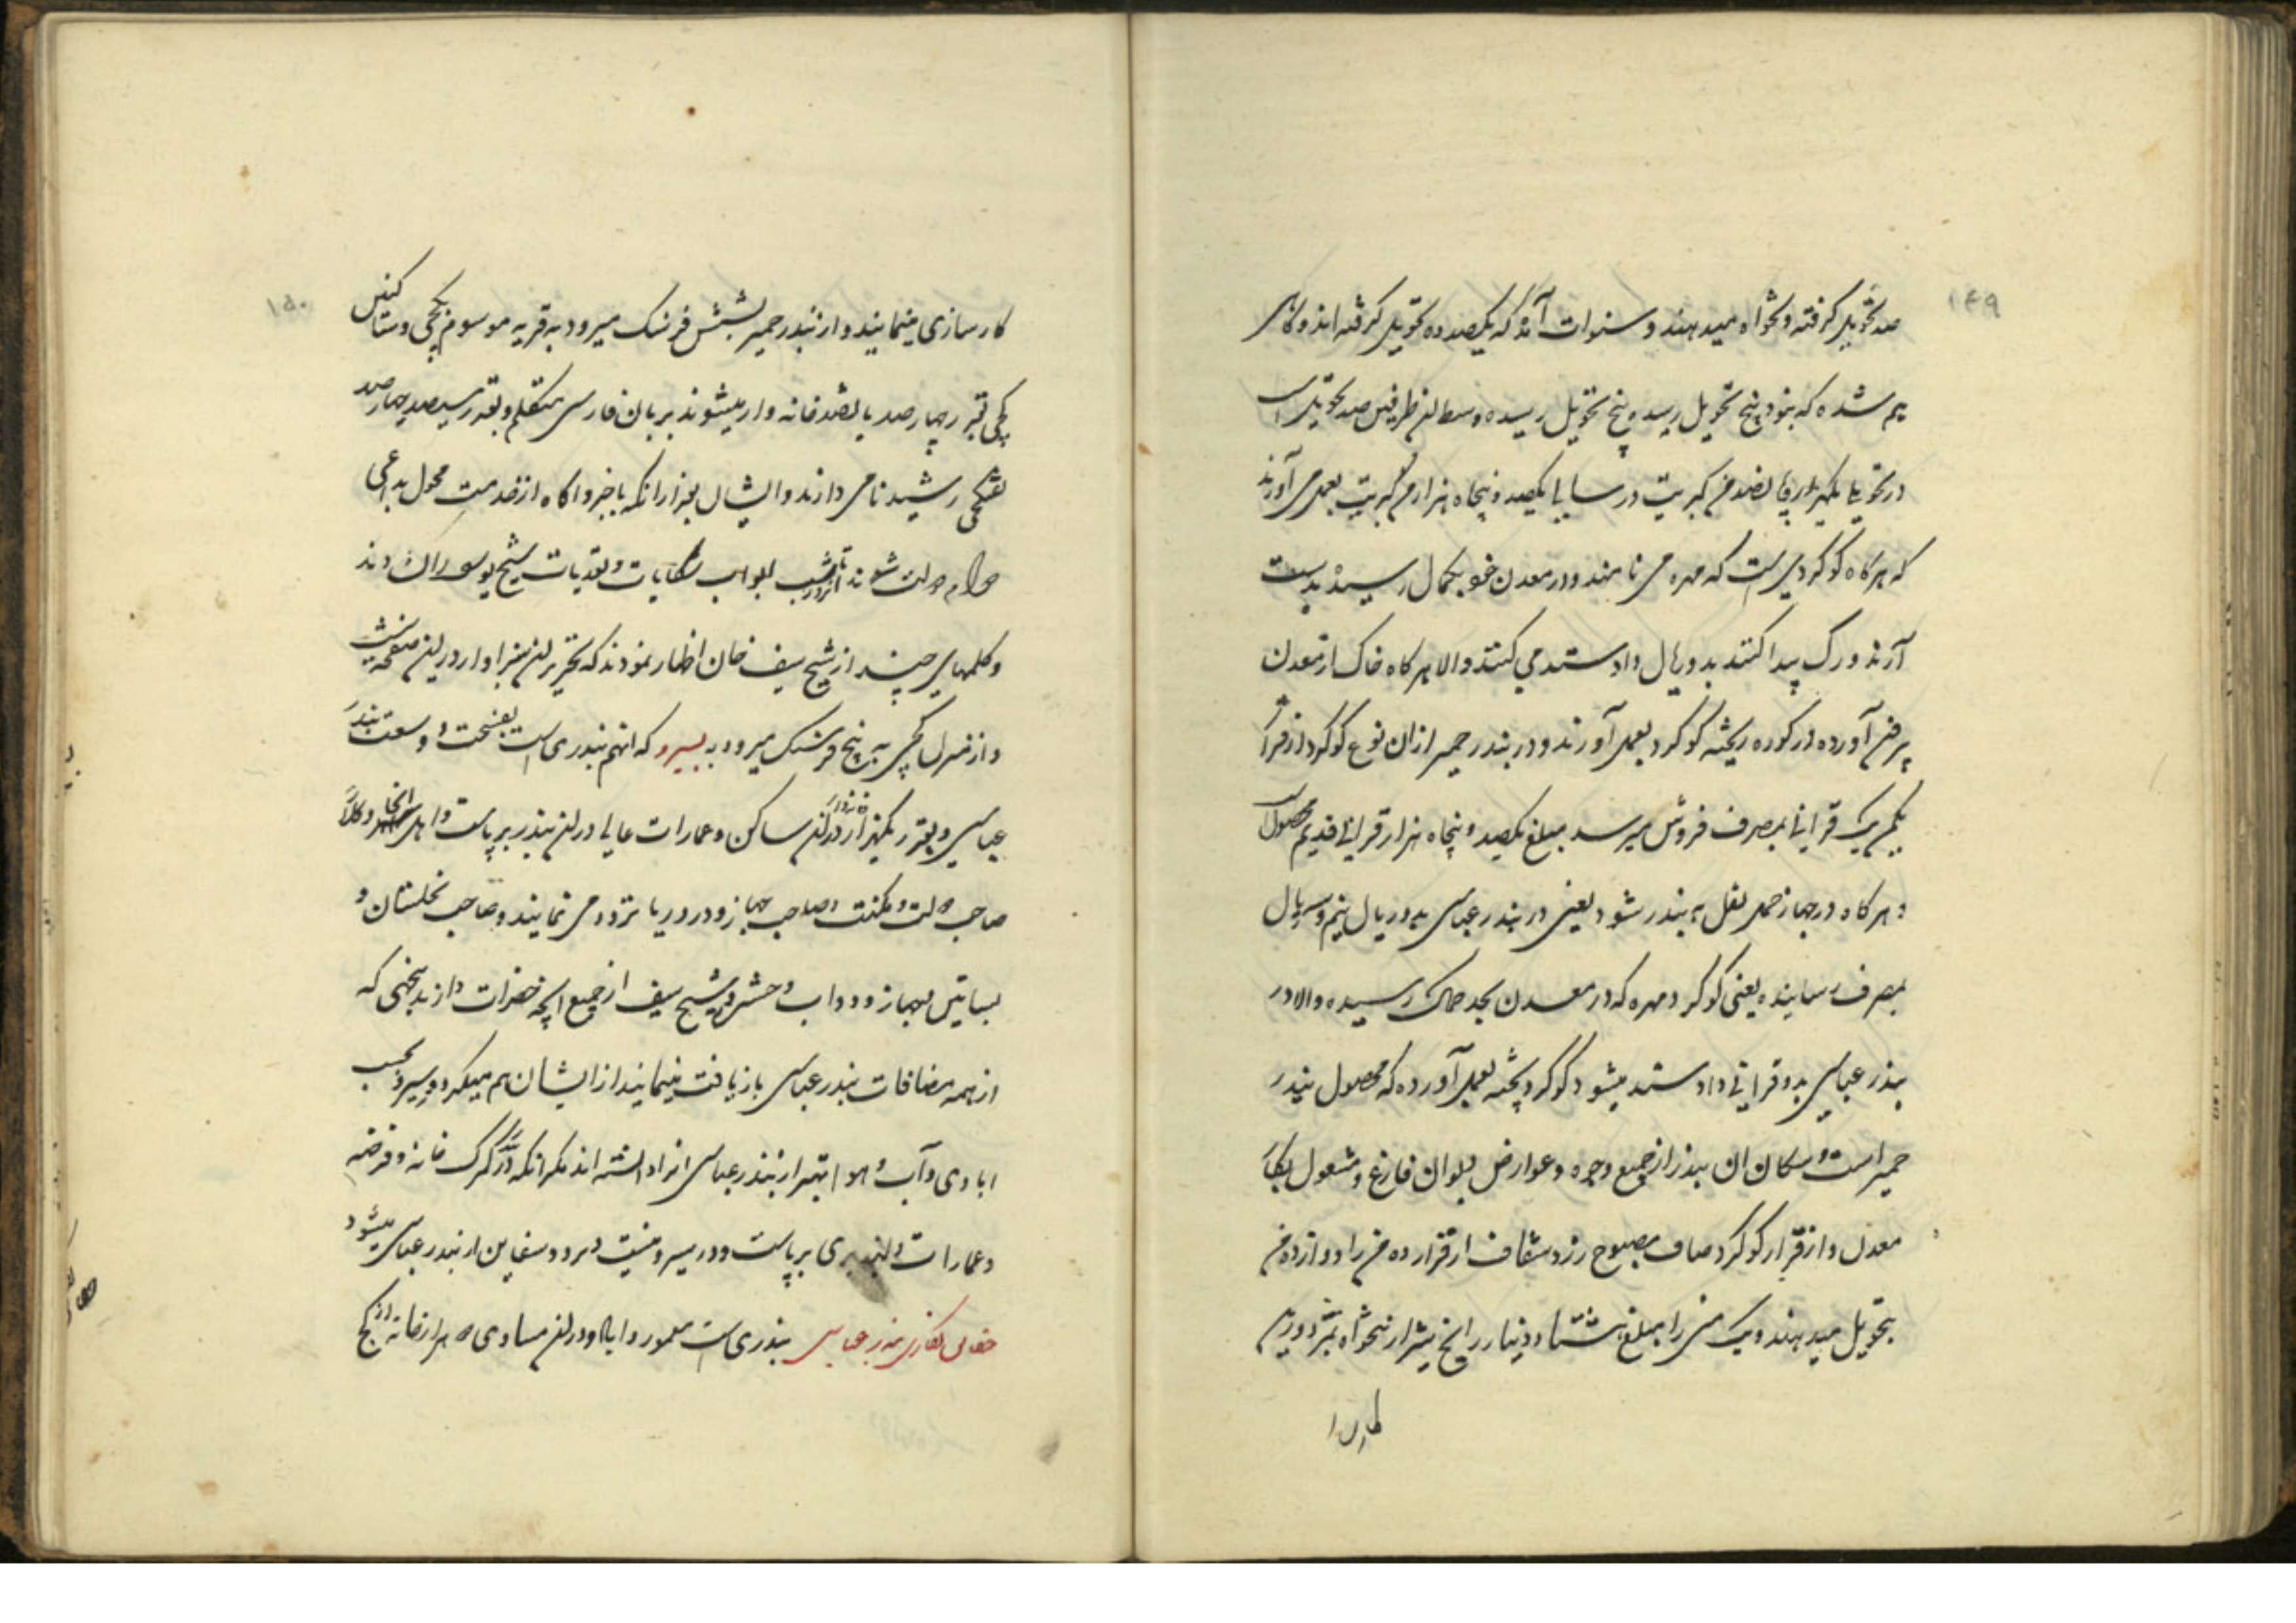 ۱۴۹
صد تحویل گرفته و تنخواه میدهند و سنوات آنکه یکصد و ده تحویل گرفته اند و گاهی
هم شده که بنود پنج تحویل رسیده و پنج تحویل رسیده وسط این طرفین صد تحویل است
در تحویل یکهزار و پانصد من کبریت در سال یکصد و پنجاه هزار من کبریت بعمل می آورند
که هرگاه گوگردی است که مهره می نامند و در معدن خود بکمال رسیده بدست
آرند و رگ پیدا کنند بدو ریال داد و ستد می کنند و الا هرگاه خاک از معدن
بیرون آورده در کوره ریخته گوگرد بعمل آورند و در بندر خمیر ازان نوع گوگرد از قرار
یکمن یک قرانی بمصرف فروش میرسد مبلغ یکصد و پنجاه هزار قرانی قدیم محصول است
و هرگاه در جهاز حمل نقل به بندر شود یعنی در بندر عباسی به دو ریال نیم و سه ریال
بمصرف رسانیده یعنی گوگرد مهره که در معدن بحد کمال رسیده و الا در
بندر عباسی بدو قرانی داد و ستد میشود گوگرد پخته بعمل آورده که محصول بندر
خمیر است و سکان ان بندر از جمیع وجوه و عوارض دیوان فارغ و مشغول بکار
معدن و از قرار گوگرد صاف مصبوح زرد شفاف از قرار ده من را دوازده من
تحویل میدهند و یک من را مبلغ هشتاد دینار رایج تبریز از تنخواه
۱۵۰
کارسازی مینمایند و از بندر خمیر بشش فرسنک میرود به قریه موسوم بکچی و سکنه
کچی بقدر چهارصد پانصد خانه وار میشوند بزبان فارسی متکلم و بقدر سیصد چهارصد
تفنگچی رشید نامی دارند و ایشان بعد از انکه باخبر و اکاه از خدمت محول بداعی
دولت شدند ابواب شکایات و تعدیات شیخ یوسف را کشودند
و کلمهای چند از شیخ سیف خان اظهار نمودند که تحریر این سزاوار در این صفحه نیست
و از منزل کچی به پنج فرسنک میرود به بسیرو که انهم بندری است بفسحت و وسعت بندر
عباسی و بقدر یکهزار خانه وار در این ساکن و عمارات عالی در این بندر برپاست و اهل انجا وکلا
صاحب دولت و مکنت و صاحب جهاز و در دریا تردد می نمایند و صاحب نخلستان و
بساتین و جهاز و دواب و حشم و شیخ سیف از جمیع انچه حضرات دارند بنحوی که
از همه مضافات بندر عباسی بازیافت مینمایند از ایشان هم میگیرد و بسیرو بحسب
ابادی و آب و هوا بهتر از بندر عباسی انرا دانسته اند مکر انکه در گمرک خانه و فرضه
و عمارات دلپذیری برپاست و در بسیرو نیست و مرود سفاین از بندر عباسی میشود
بندر عباسی بندری است معمور و اباد و در این مساوی هزار خانه از کچ